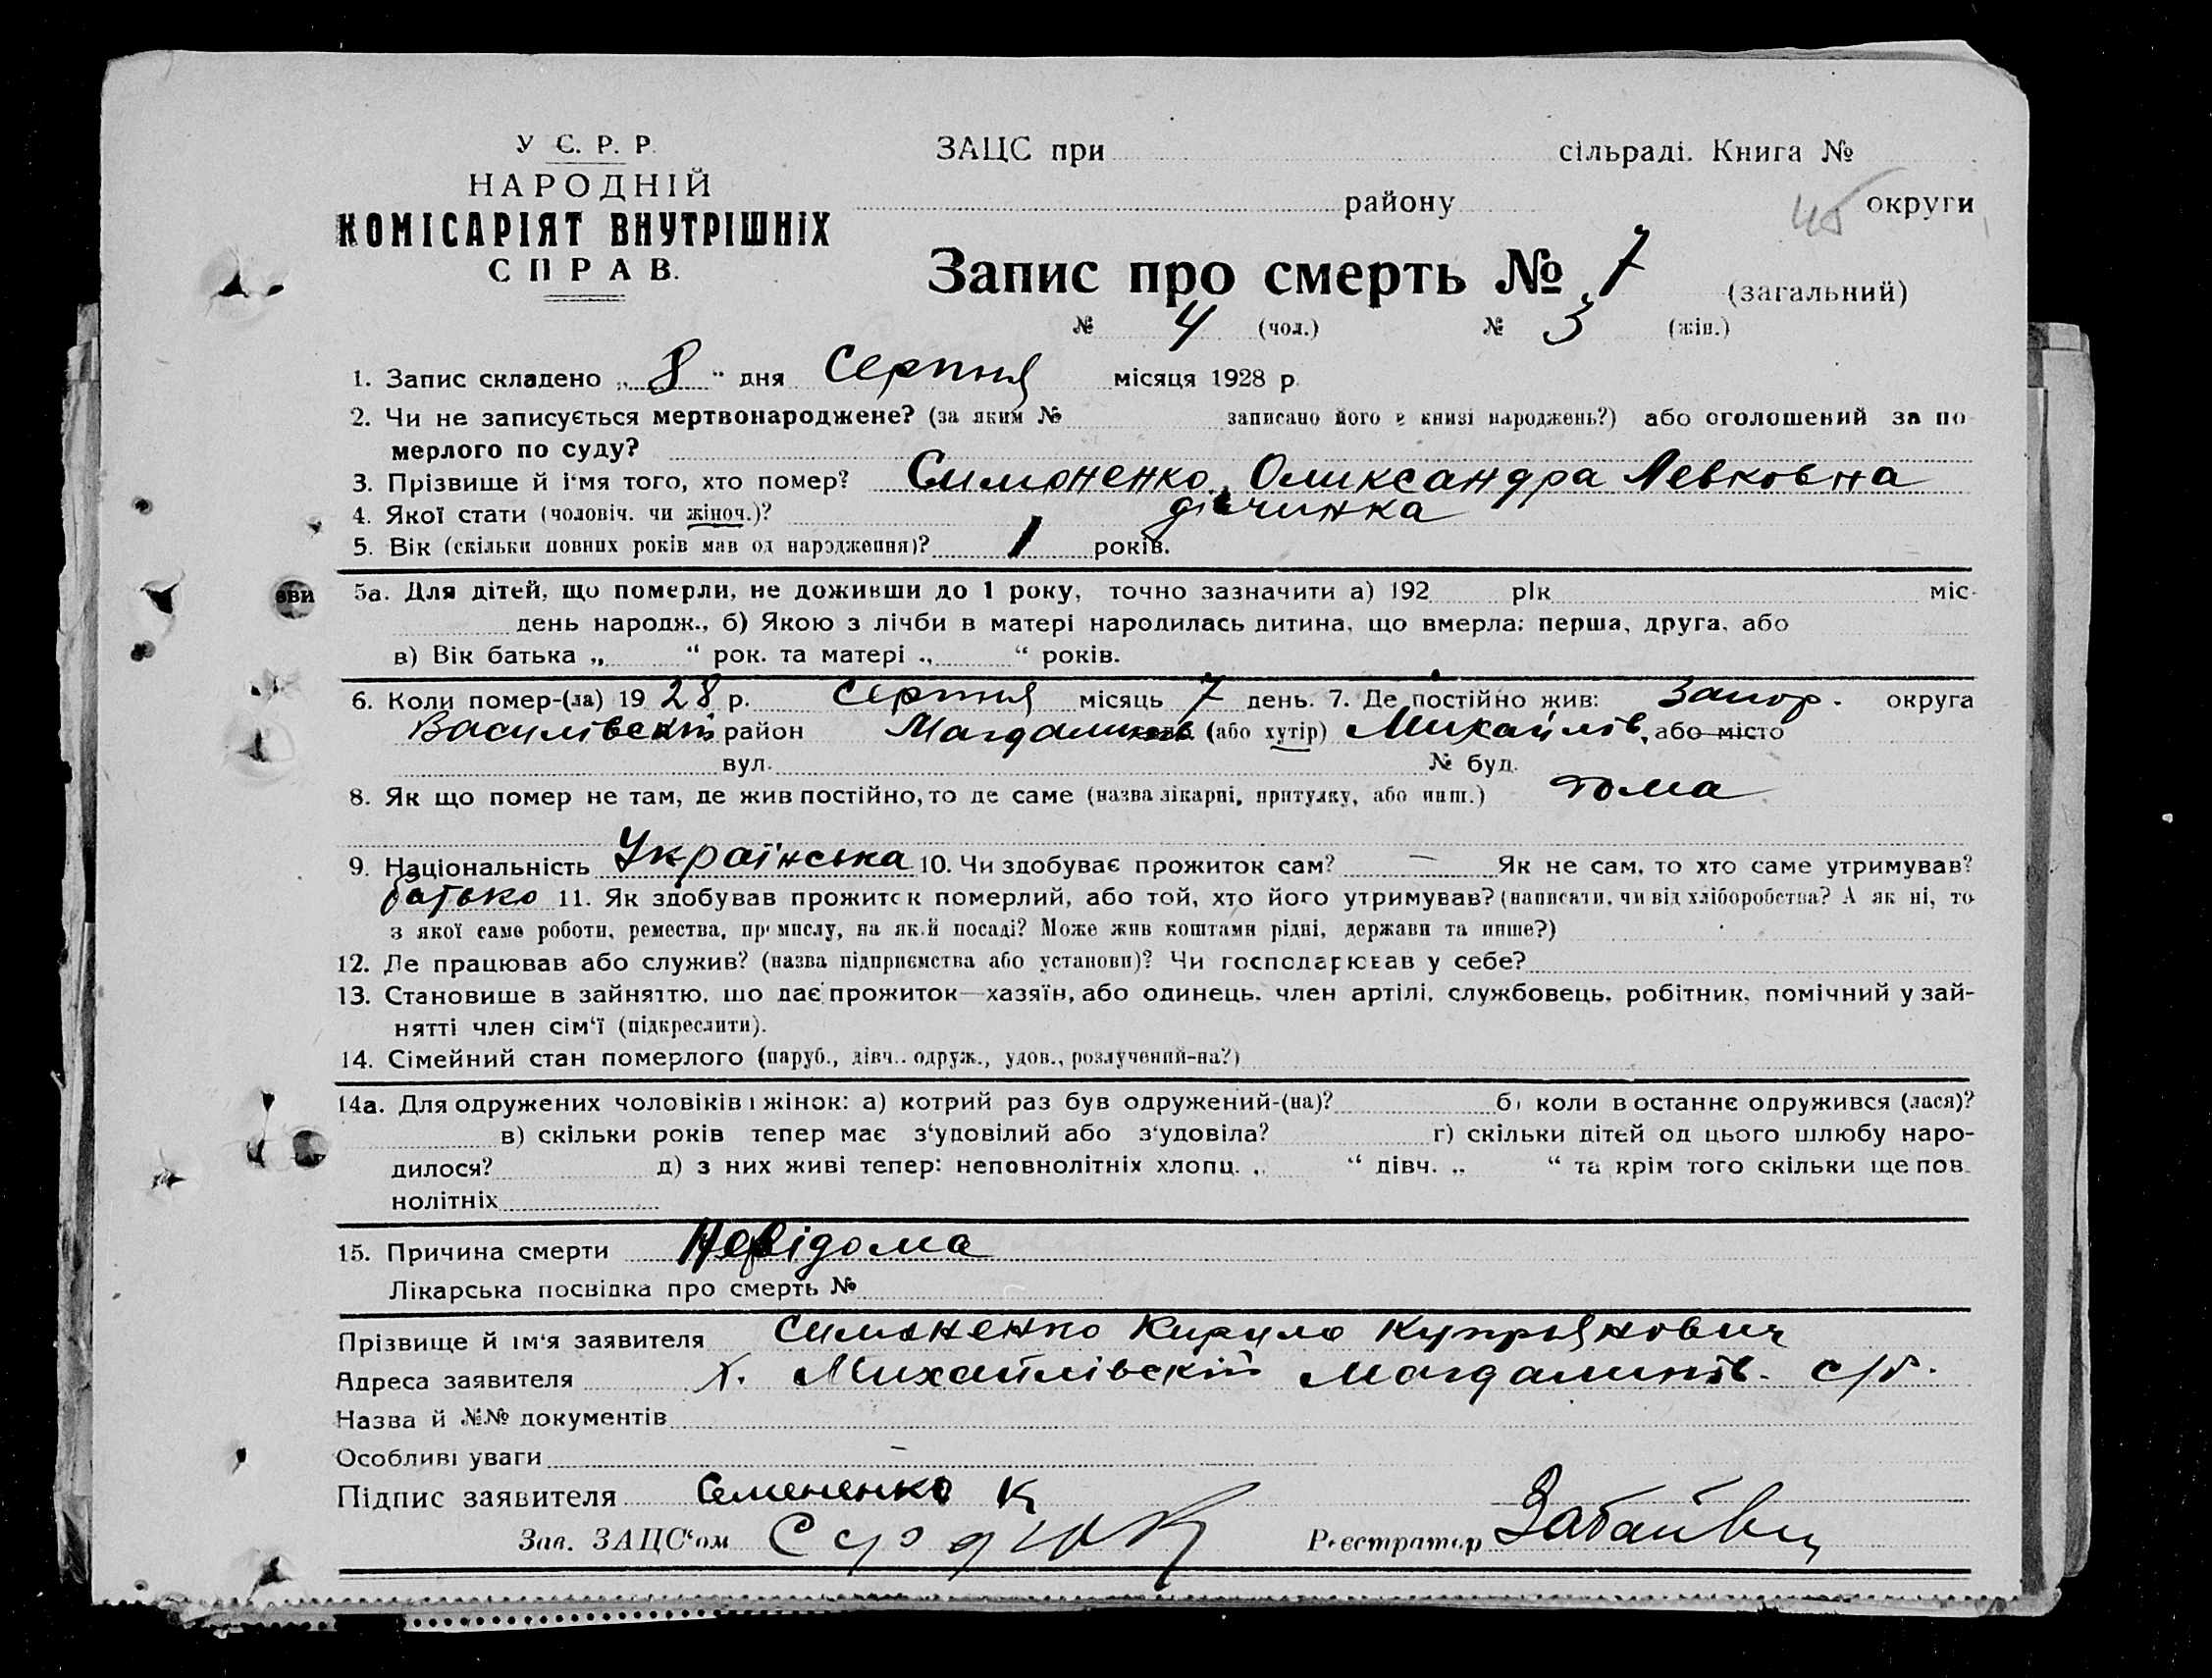 У С. Р. Р.
НАРОДНІЙ
КОМІСАРІЯТ ВНУТРІШНІХ
СПРАВ.
ЗАЦС при сільраді. Книга №
району округи
45
Запис про смерть № 7 (загальний)
№ 4 (чол.) № 3 (жін.)
1. Запис складено „ 8 “ дня Серпня місяця 1928 р.
2. Чи не записується мертвонароджене? (за яким № записано його в книзі народжень?) або оголошений за по
мерлого по суду?
3. Прізвище й і‘мя того, хто помер? Симоненко Олександра Левковна
4. Якої стати (чоловіч. чи жіноч.)? дівчинка
5. Вік (скільки повних років мав од народження)? 1 років.
еви
5а. Для дітей, що померли, не доживши до 1 року, точно зазначити а) 192 рік міс-
день народж., б) Якою з лічби в матері народилась дитина, що вмерла: перша, друга, або
в) Вік батька „ “ рок. та матері „ “ років.
6. Коли помер-(ла) 19 28 р. Серпня місяць 7 день. 7. Де постійно жив: Запор. округа
Василівскій район Магдалинів (або хутір) Михайлів, або місто
вул. № буд.
8. Як що помер не там, де жив постійно, то де саме (назва лікарні, притулку, або инш.) дома
9. Національність Українська 10. Чи здобуває прожиток сам? — Як не сам, то хто саме утримував?
батько 11. Як здобував прожиток померлий, або той, хто його утримував? (написати, чи від хліборобства? А як ні, то
з якої саме роботи, ремества, промислу, на якій посаді? Може жив коштами рідні, держави та инше?)
12. Де працював або служив? (назва підприємства або установи)? Чи господарював у себе?
13. Становище в зайняттю, що дає прожиток—хазяїн, або одинець, член артілі, службовець, робітник, помічний у зай-
нятті член сім‘ї (підкреслити).
14. Сімейний стан померлого (паруб., дівч., одруж., удов., розлучений-на?)
14а. Для одружених чоловіків і жінок: а) котрий раз був одружений-(на)? б) коли в останнє одружився (лася)?
в) скільки років тепер має з‘удовілий або з‘удовіла? г) скільки дітей од цього шлюбу наро-
дилося? д) з них живі тепер: неповнолітніх хлопц. „ “ дівч. „ “ та крім того скільки ще пов-
нолітніх
15. Причина смерти Невідома
Лікарська посвідка про смерть №
Прізвище й ім‘я заявителя Симоненко Кирило Купріянович
Адреса заявителя х. Михайлівскій Магдалинів. с/р.
Назва й №№ документів
Особливі уваги —
Підпис заявителя Семененко К
Зав. ЗАЦС‘ом Сердюк Реєстратор